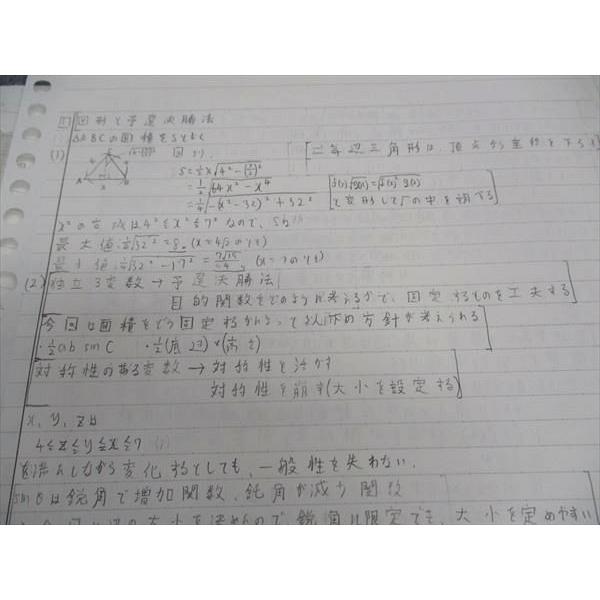 図形と予選決勝法
△ABCの面積をSとおく
(1) 図より、 [二等辺三角形は、頂点から垂線を下ろす
S=½x√4²-(x/2)²
=¼√64x²-x⁴
=¼√-(x²-32)²+32²
と変形して√の中を調べる]
x²の変域は4²≦x²≦7²なので、Sは
最大値 ¼√32²=8 (x=4√2のとき)
最小値 ¼√32²-17²=7√15/4 (x=7のとき)
(2) 独立3変数→予選決勝法
目的関数をどのように考えるかで、固定するものを工夫する]
今回は面積をどう固定するかによって以下の方針が考えられる
・½ab sinC ・½(底辺)×(高さ)
対称性のある変数→対称性を活かす
対称性を崩す(大小を設定する)
x, y, zは
4≦z≦y≦x≦7
を満たしながら変化するとしても、一般性を失わない.
sinθは鋭角で増加関数、鈍角が減少関数
の大小を決めたので、鋭角に限定でき、大小を定めやすい